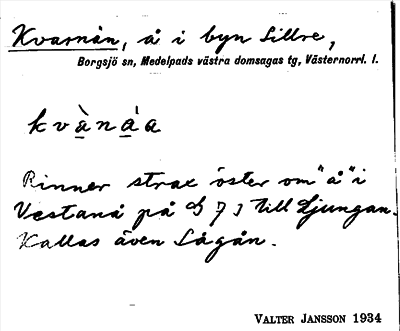 Kvarnån, å i byn Sillre,
Borgsjö sn, Medelpads västra domsagas tg, Västernorrl. l.
kvànáa
Rinner strax öster om "å" i
Vestanå på S 7 J till Ljungan.
Kallas även Sågån.
VALTER JANSSON 1934